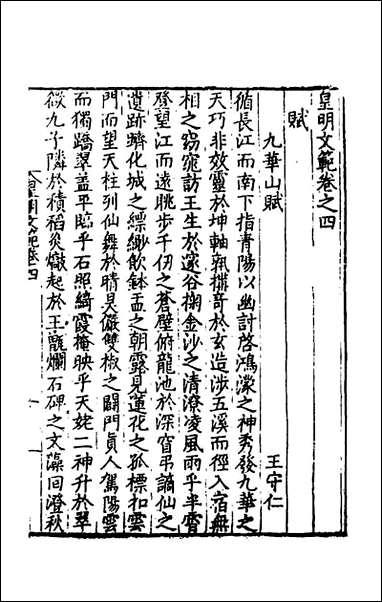 皇明文範卷之四
賦
九華山賦
王守仁
循長江而南下指青陽以幽討啓鴻濛之神秀發九華之
天巧非效靈於坤軸孰搆奇於玄造涉五溪而徑入宿無
相之窈窕訪王生於邃谷掬金沙之清潦凌風雨乎半霄
登望江而遠眺步千仞之蒼壁俯龍池於深窅弔謫仙之
遺跡躋化城之縹緲飲鉢盂之朝露見蓮花之孤標扣雲
門而望天柱列仙舞於晴昊儼雙椒之闢門眞人駕陽雲
而獨蹻翠蓋平臨乎石照綺霞掩映乎天姥二神升於翠
微九子隣於積稻炎熇起於玉甑爛石碑之文藻回澄秋
皇明文範卷四